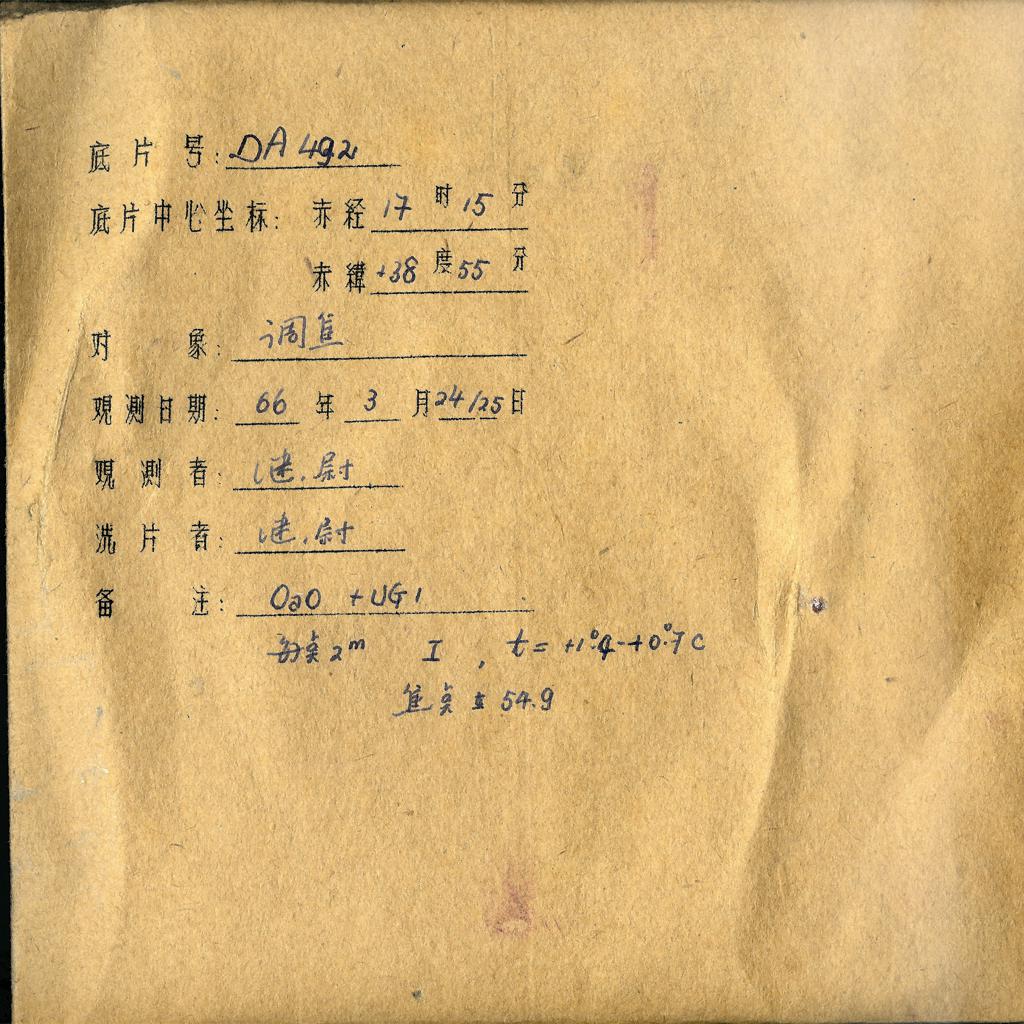 底片号: DA 492
底片中心坐标: 赤经 17 时 15 分
赤緯 +38 度 55 分
对象: 调焦
观测日期: 66 年 3 月 24/25 日
观测者: 尉
洗片者: 尉
备注: OaO +UG1
每点 2m I , t = +1°.4-+0°.7 C
焦点 54.9